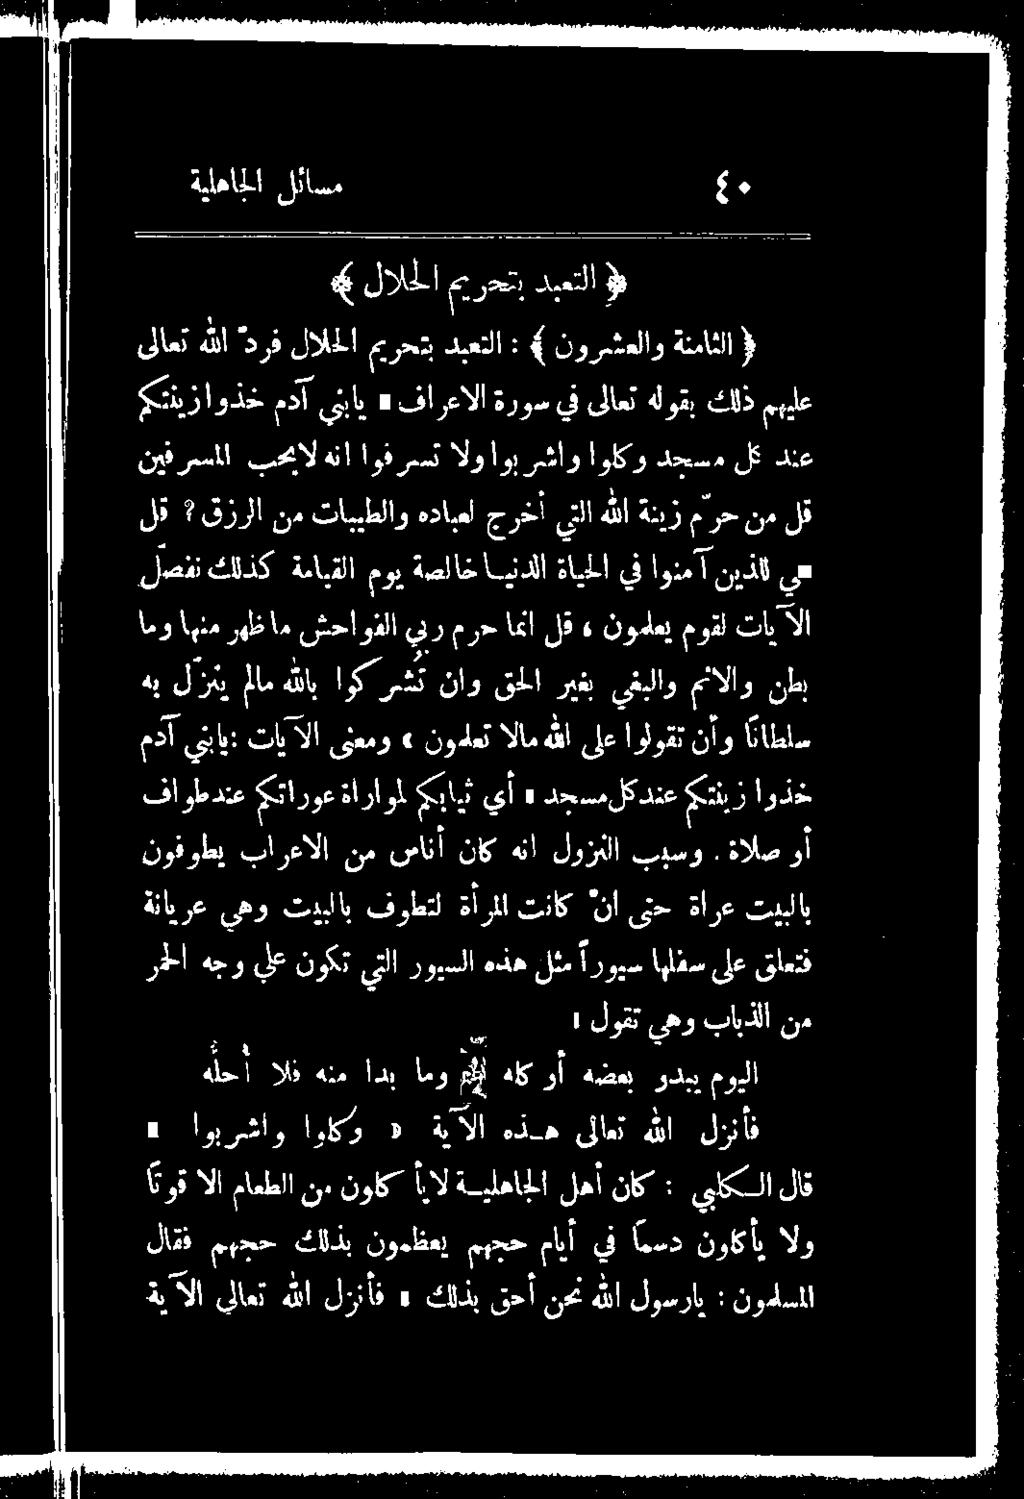 ٤٠ مسائل الجاهلية
﴿ التعبد بتحريم الحلال ﴾
﴿ الثامنة والعشرون ﴾ : التعبد بتحريم الحلال فردّ الله تعالى
عليهم ذلك بقوله تعالى في سورة الاعراف يابني آدم خذوا زينتكم
عند كل مسجد وكلوا واشربوا ولا تسرفوا انه لايحب المسرفين
قل من حرّم زينة الله التي أخرج لعباده والطيبات من الرزق ؟ قل
هي للذين آمنوا في الحياة الدنيـا خالصة يوم القيامة كذلك نفصّل
الآيات لقوم يعلمون ، قل انما حرم ربي الفواحش ما ظهر منها وما
بطن والاثم والبغي بغير الحق وان تُشركوا بالله مالم ينزّل به
سلطاناً وأن تقولوا على الله مالا تعلمون » ومعنى الآيات : يابني آدم
خذوا زينتكم عند كل مسجد أي ثيابكم لمواراة عوراتكم عند طواف
أو صلاة . وسبب النزول انه كان أناس من الاعراب يطوفون
بالبيت عراة حتى انّ كانت المرأة لتطوف بالبيت وهي عريانة
فتعلق على سفلها سيوراً مثل هذه السيور التي تكون على وجه الحمر
من الذباب وهي تقول :
اليوم يبدو بعضه أو كله وما بدا منه فلا أُحلّه
فأنزل الله تعالى هـذه الآية « وكلوا واشربوا
قال الـكلبي : كان أهل الجاهليـة لايأكلون من الطعام الا قوتاً
ولا يأكلون دسماً في أيام حجهم يعظمون بذلك حجهم فقال
المسلمون : يارسول الله نحن أحق بذلك فأنزل الله تعالى الآية